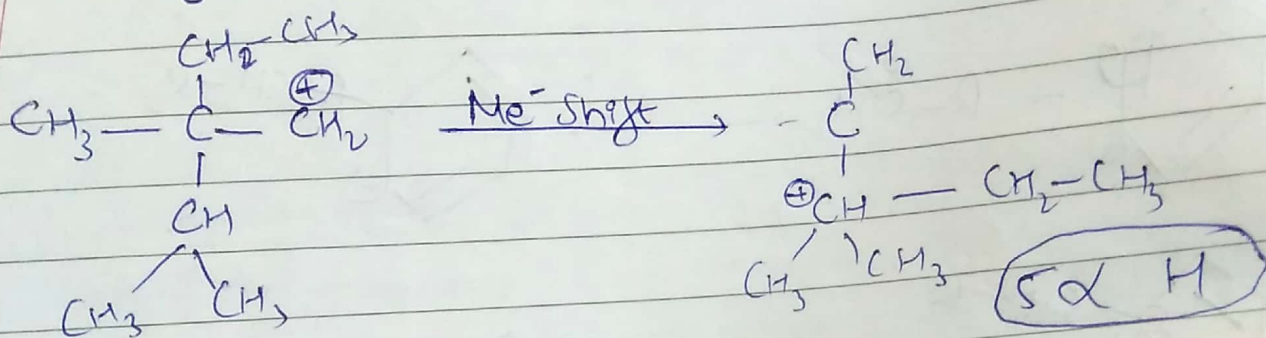 CH2-CH3 CH2
CH3— C — CH2 ⊕ Me⁻ Shift → - C
CH ⊕CH — CH2-CH3
CH3 CH3 CH3 CH3 5α H